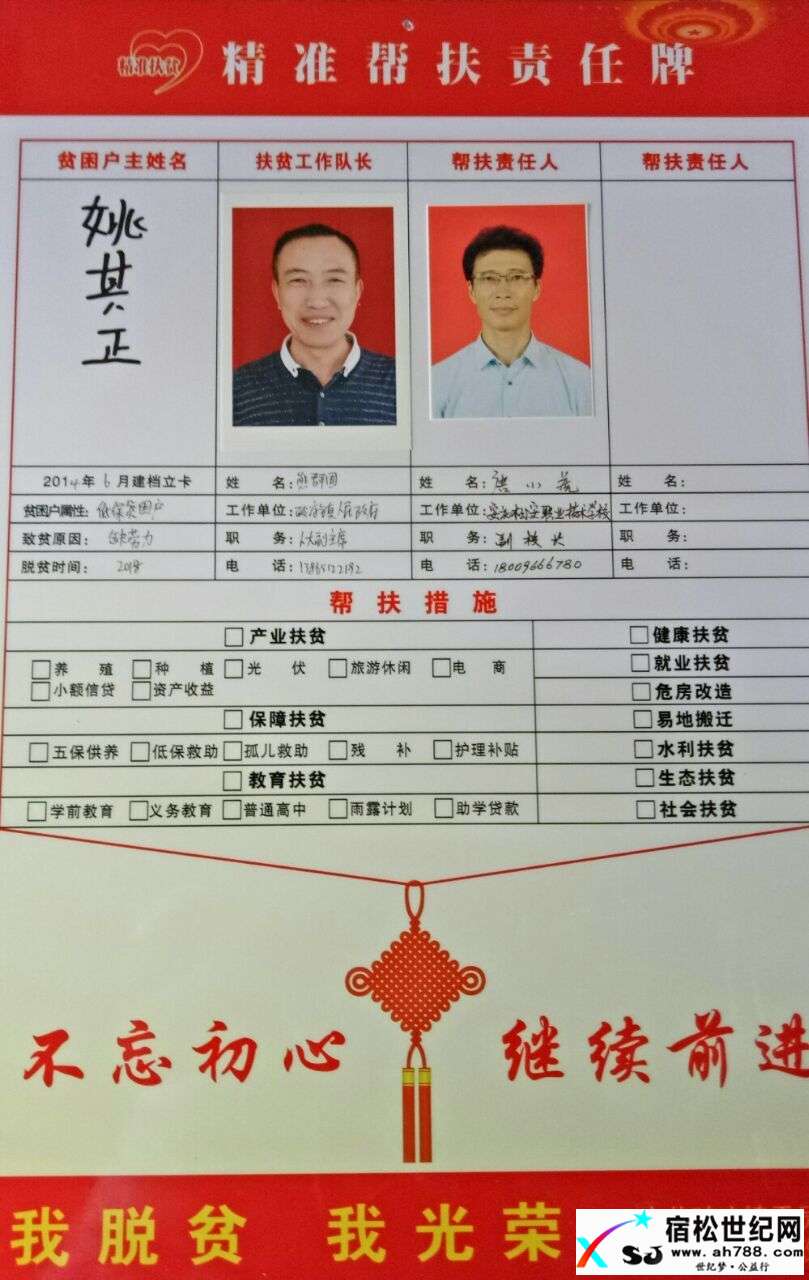 精准扶贫
精准帮扶责任牌
贫困户主姓名 扶贫工作队长 帮扶责任人 帮扶责任人
姚其正
2014年6月建档立卡 姓 名: 姓 名: 小 姓 名:
贫困户属性: 低保贫困户 工作单位: 工作单位: 职业技术学校 工作单位:
致贫原因: 缺劳力 职 务: 职 务: 副校长 职 务:
脱贫时间: 2018 电 话: 电 话: 18009666780 电 话:
帮扶措施
产业扶贫 健康扶贫
养 殖 种 植 光 伏 旅游休闲 电 商 就业扶贫
小额信贷 资产收益 危房改造
保障扶贫 易地搬迁
五保供养 低保救助 孤儿救助 残 补 护理补贴 水利扶贫
教育扶贫 生态扶贫
学前教育 义务教育 普通高中 雨露计划 助学贷款 社会扶贫
不忘初心 继续前进
我脱贫 我光荣
SJ 宿松世纪网
www.ah788.com
世纪梦·公益行